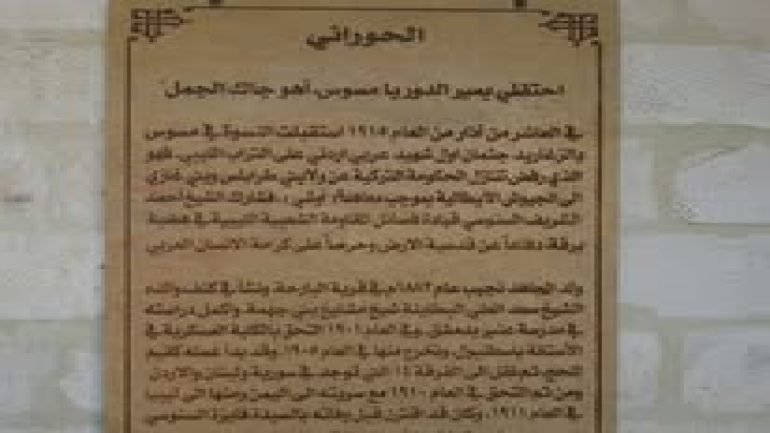 الحوراني
احتفلي بمير الدور يا مسوس، أهو جالك الجمل
في العاشر من آذار من العام ١٩١٥ استقبلت النسوة في مسوس
والزغاريد، جثمان اول شهيد عربي اردني على التراب الليبي، فهو
الذي رفض تنازل الحكومة التركية عن ولايتي طرابلس وبني غازي
الى الجيوش الايطالية بموجب معاهدة اوشي، فشارك الشيخ أحمد
الشريف السنوسي قيادة فصائل المقاومة الشعبية الليبية في هضبة
برقة، دفاعاً عن قدسية الارض وحرصاً على كرامة الانسان العربي
ولد المجاهد نجيب عام ١٨٨٢م في قرية البارحة، ونشأ في كنف والده
الشيخ سعد العلي البطاينة شيخ مشايخ بني جهمة، وأكمل دراسته
في مدرسة عنبر بدمشق، وفي العام ١٩٠١ التحق بالكلية العسكرية في
الأستانة باسطنبول، وتخرج منها في العام ١٩٠٥، وقد بدأ عمله
ثم نقل الى الفرقة التي توجد في سورية ولبنان والأردن
ومن ثم التحق في العام ١٩١٠ مع سريته الى اليمن ومنها الى ليبيا
في العام ١٩١١، وكان قد اقترن قبل وفاته بالسيدة فايزة السنوسي